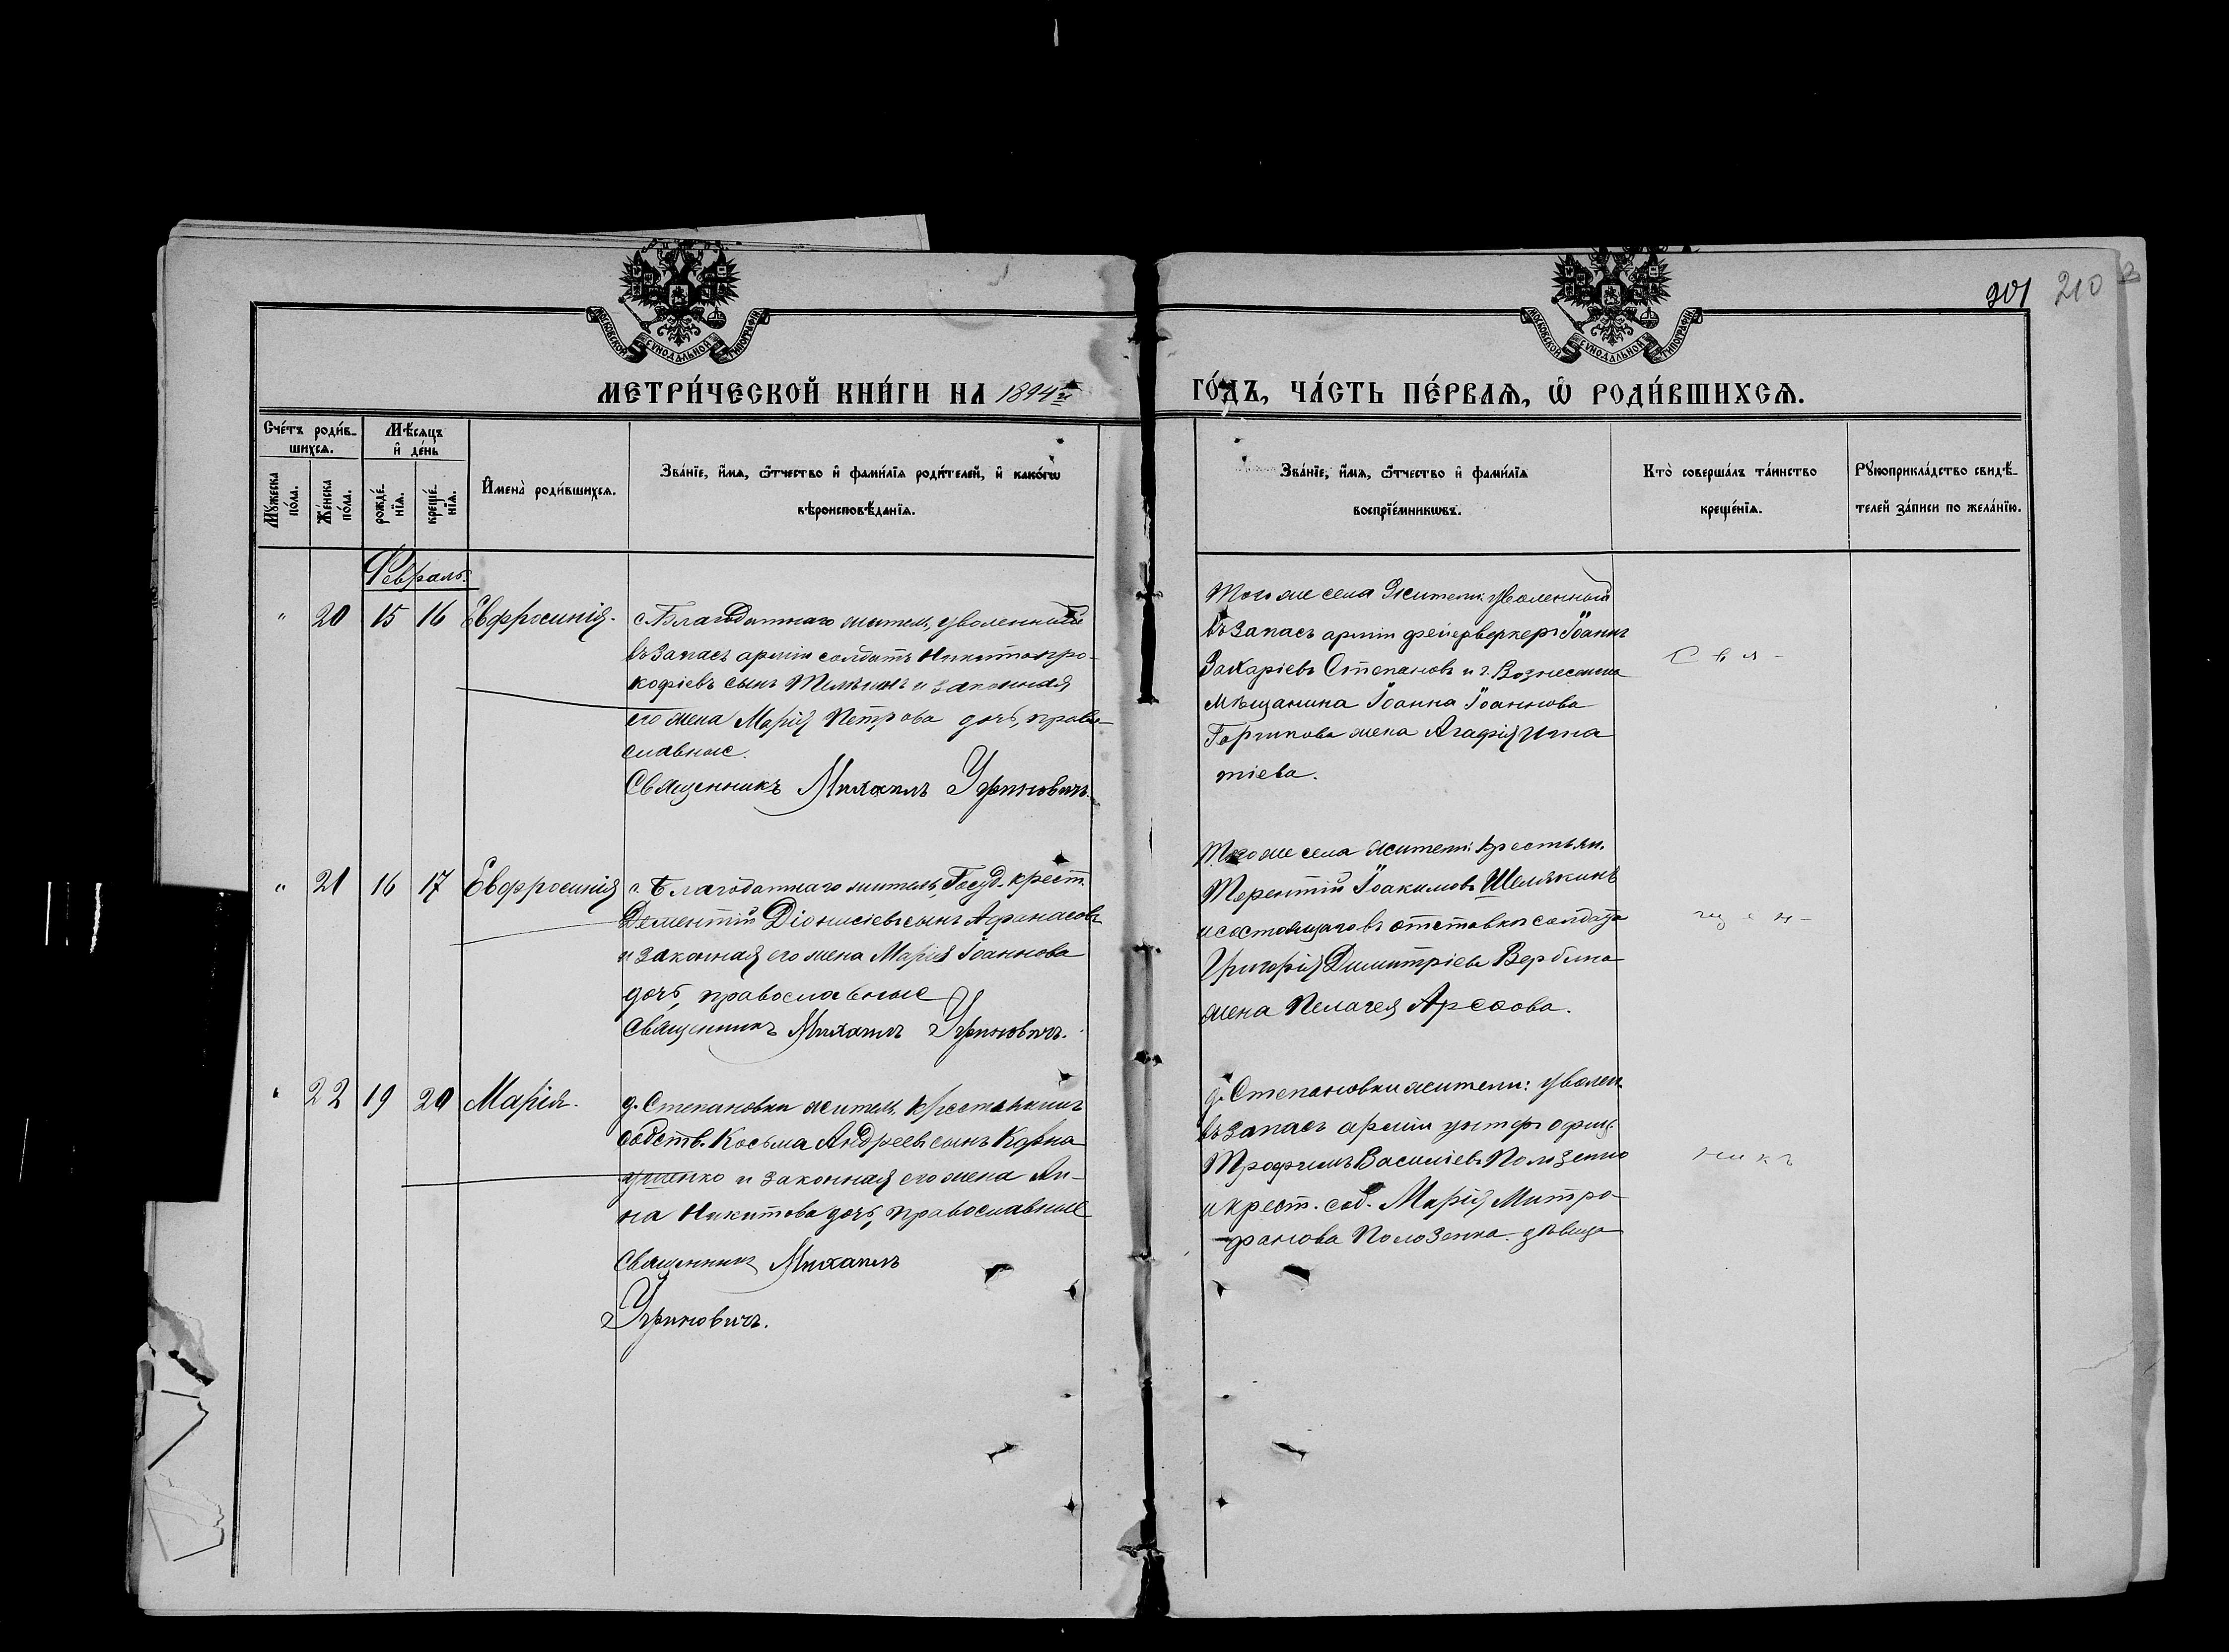 901 210
МОСКОВСКОЙ СѴНОДАЛЬНОЙ ТИПОГРАФІИ
МОСКОВСКОЙ СѴНОДАЛЬНОЙ ТИПОГРАФІИ
МЕТРИ́ЧЕСКОЙ КНИ́ГИ НА 1894й ГО́ДЪ, ЧА́СТЬ ПЕ́РВАѦ, Ѡ҆ РОДИ́ВШИХСѦ.
Сче́тъ роди́в-
шихсѧ.
Мꙋ́жеска по́ла.
Же́нска по́ла.
Мѣ́сѧцъ
и҆ де́нь
рожде́-
нїѧ.
креще́-
нїѧ.
И҆мена̀ роди́вшихсѧ.
Зва́нїе, и҆́мѧ, ѻ҆́тчество и҆ фами́лїѧ роди́телей, и҆ како́гѡ
вѣроисповѣ́данїѧ.
Зва́нїе, и҆́мѧ, ѻ҆́тчество и҆ фами́лїѧ
воспрїе́мникѡвъ.
Кто̀ соверша́лъ та́инство
креще́нїѧ.
Рꙋкоприкла́дство свидѣ́-
телей за́писи по жела́нїю.
Февраль.
" 20 15 16 Евфросинія.
с. Благодатнаго житель, уволенный
въ запасъ арміи солдатъ Никита Про-
кофіевъ сынъ и законная
его жена Марія Петрова дочь, право-
славные.
Священникъ Михаилъ Уриновичъ.
Того же села жители: уволенный
въ запасъ арміи фейерверкеръ Іоаннъ
Захаріевъ Степановъ и г. Вознесенска
мѣщанина Іоанна Іоаннова
жена Агафія Игна
тіева.
Свя-
" 21 16 17 Евфросинія
с. Благодатнаго житель, Госуд. крест.
Дементій Діонисіевъ сынъ Афанасовъ
и законная его жена Марія Іоаннова
дочь, православные
Священникъ Михаилъ Уриновичъ.
Того же села жители: крестьян.
Терентій Іоакимовъ Шелякинъ
и состоящаго въ отставкѣ солдата
Григорія Димитріева Вербина
жена Пелагея
щен-
" 22 19 20 Марія.
д. Степановки житель, крестьянинъ
собств. Косьма Андреевъ сынъ Карна
ушенко и законная его жена Ан-
на Никитова дочь, православные
Священникъ Михаилъ
Уриновичъ.
д. Степановки жители: уволен.
въ запасъ арміи унтеръ офиц.
Трофимъ Василіевъ
и крест. соб. Марія Митро-
фанова дѣвица
никъ